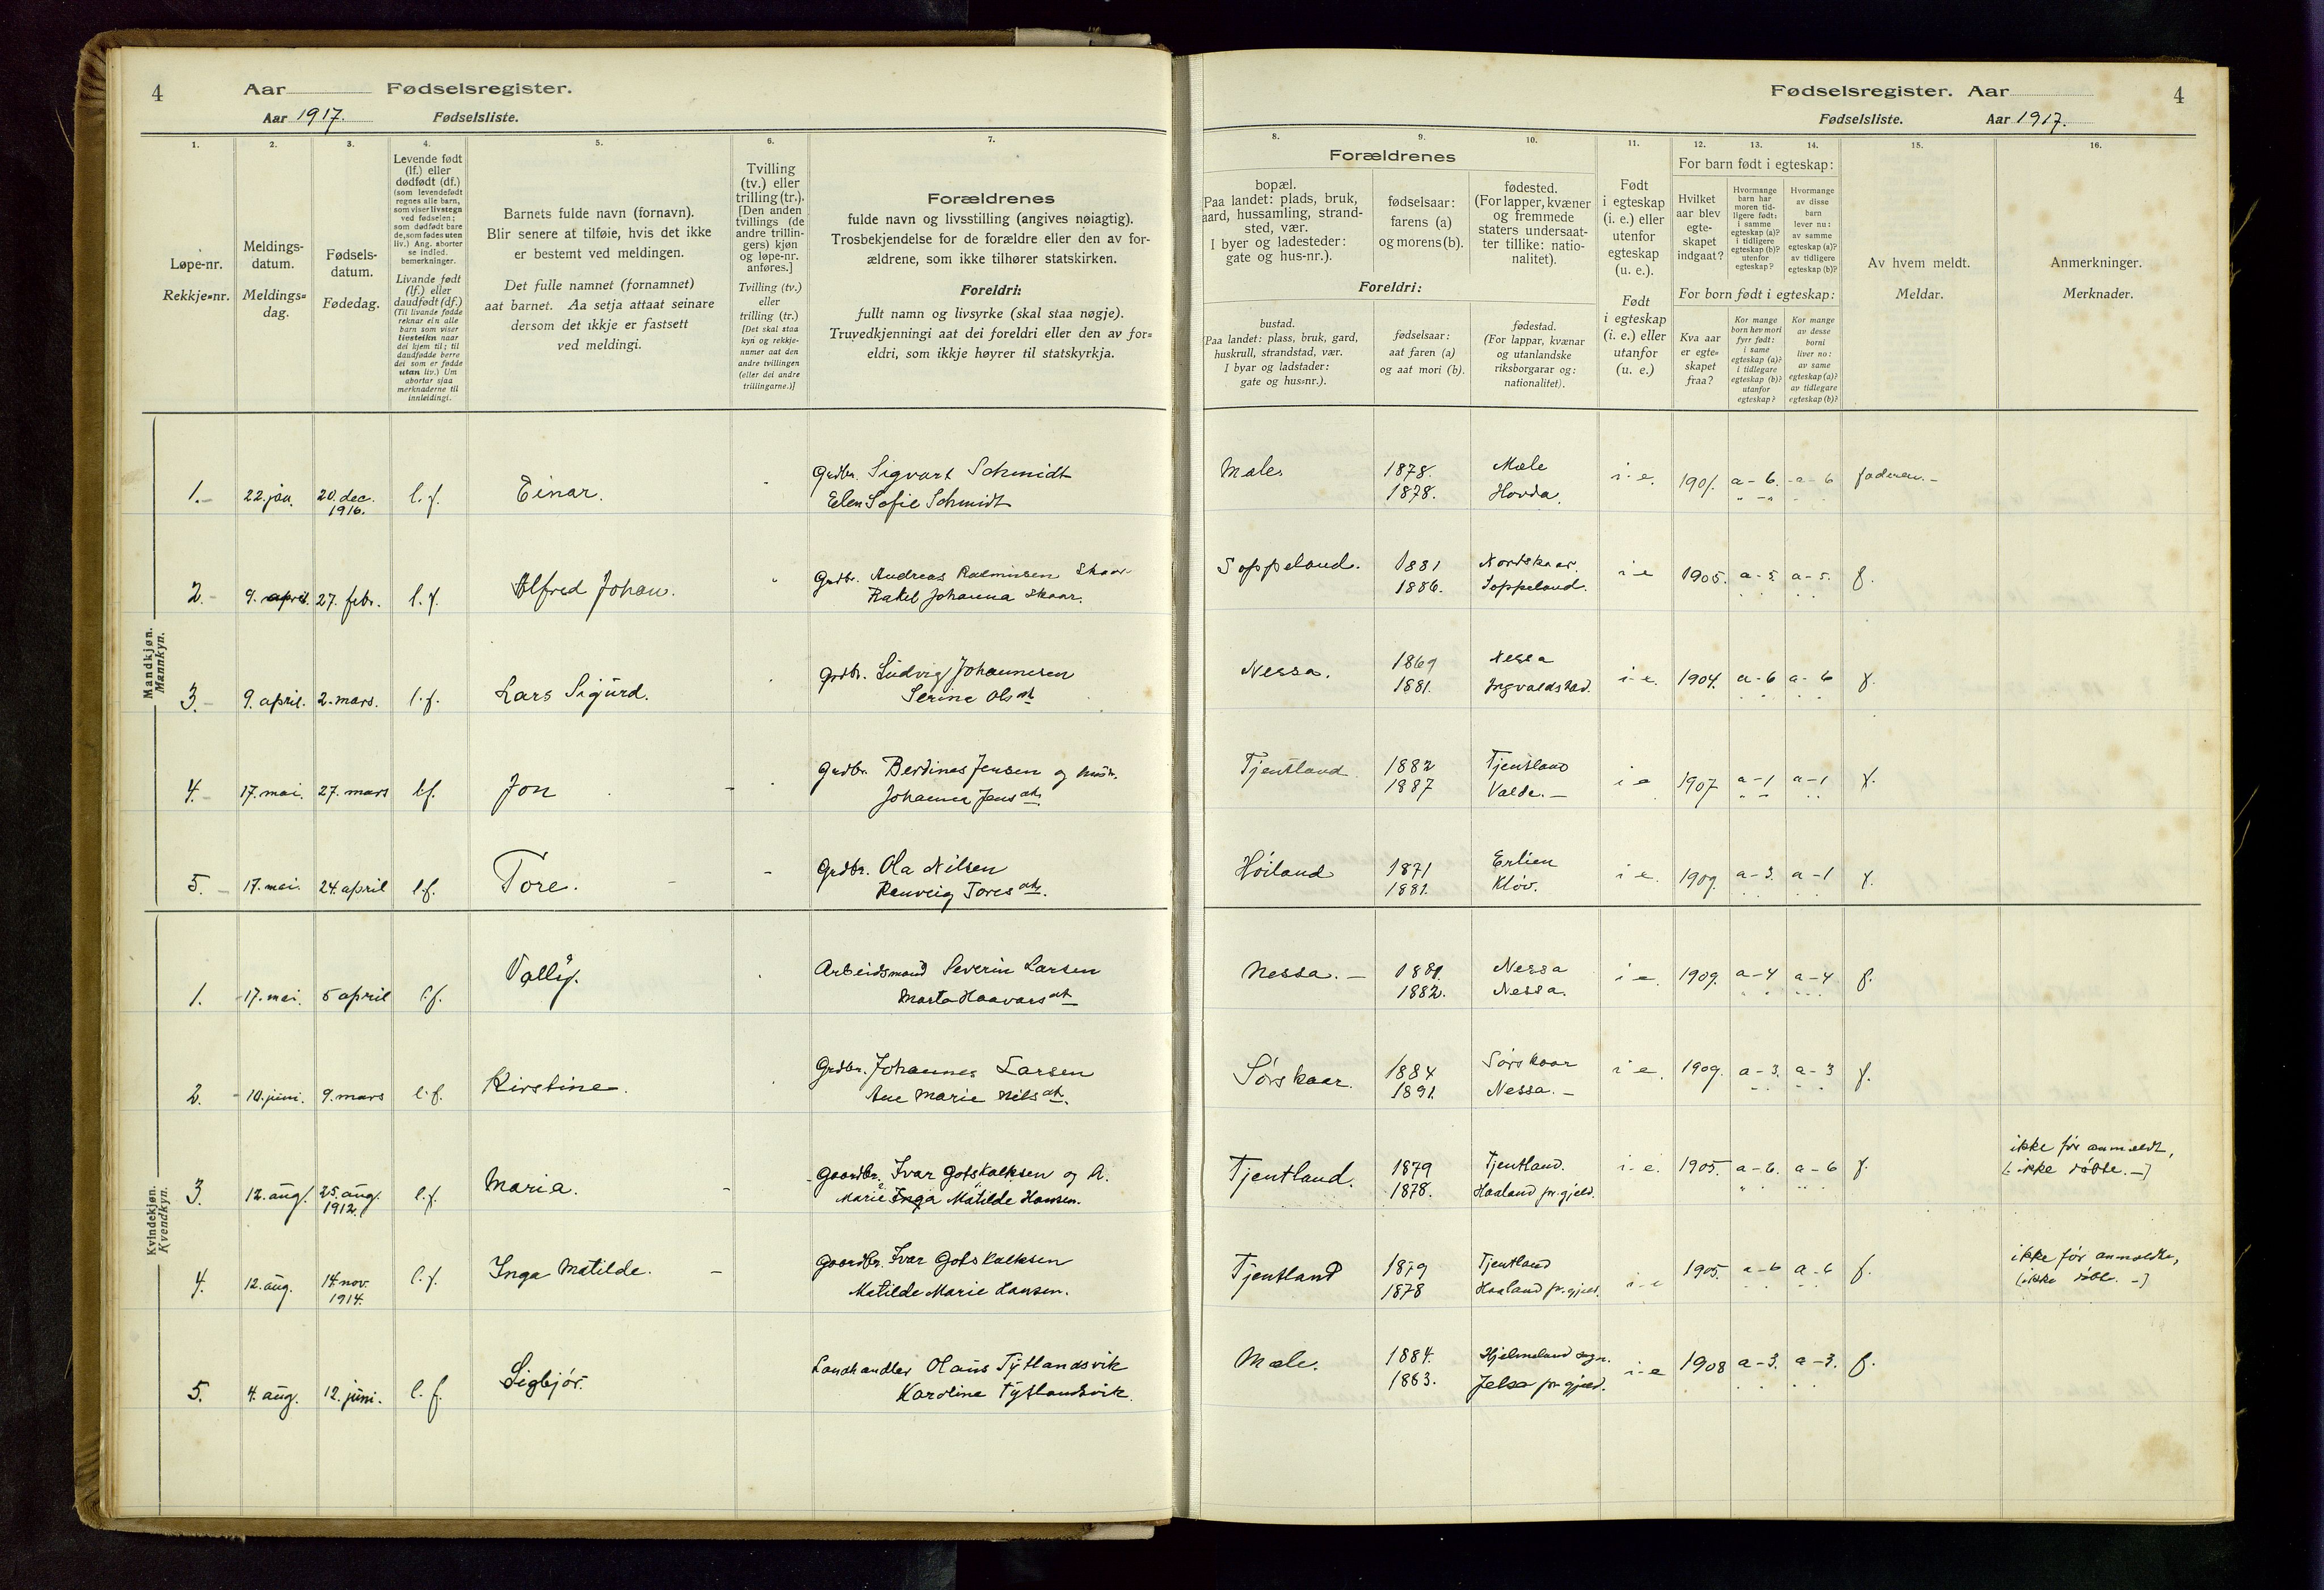 4 Aar Fødselsregister.
Aar 1917. Fødselsliste.
1. 2. 3. 4. 5. 6. 7.
Løpe-nr.
Rekkje=nr.
Meldings-
datum.
Meldings=
dag.
Fødsels-
datum.
Fødedag.
Levende født
(lf.) eller
dødfødt (df.)
(som levendefødt
regnes alle barn,
som viser livstegn
ved fødselen;
som dødfødt bare
de, som fødes uten
liv.) Ang. aborter
se indled.
bemerkninger.
Livande født
(lf.) eller
daudfødt (df.)
(Til livande fødde
reknar ein alle
barn som viser
livsteikn naar
dei kjem til; til
daudfødde berre
dei som er fødde
utan liv.) Um
abortar sjaa
merknaderne til
innleidingi.
Barnets fulde navn (fornavn).
Blir senere at tilføie, hvis det ikke
er bestemt ved meldingen.
Det fulle namnet (fornamnet)
aat barnet. Aa setja attaat seinare
dersom det ikkje er fastsett
ved meldingi.
Tvilling
(tv.) eller
trilling (tr.).
[Den anden
tvillings (de
andre trillin-
gers) kjøn
og løpe-nr.
anføres.]
Tvilling (tv.)
eller
trilling (tr.)
[Det skal staa
kyn og rekkje-
numer aat den
andre tvillingen
(eller dei andre
trillingarne.)]
Forældrenes
fulde navn og livsstilling (angives nøiagtig).
Trosbekjendelse for de forældre eller den av for-
ældrene, som ikke tilhører statskirken.
Foreldri:
fullt namn og livsyrke (skal staa nøgje).
Truvedkjenningi aat dei foreldri eller den av for=
eldri, som ikkje høyrer til statskyrkja.
Mandkjøn.
Mannkyn.
1. 22. jan. 20. dec. 1916. l. f. Einar. Grdbr. Sigvart Schmidt
Elen Sofie Schmidt
2. 9. april. 27. febr. l. f. Alfred Johan. Grdbr. Andreas Rasmussen Skaar
Rakel Johanna Skaar.
3. 9. april. 2. mars. l. f. Lars Sigurd. Grdbr. Ludvig Johannesen
Serine Olsdt
4. 17. mai. 27. mars l.f. Jon Grdbr. Berdines Jensen og hustr.
Johanna Jensdtr.
5. 17. mai. 24. april l.f. Tore. Grdbr. Ola Nilsen
Ranveig Toresdtr.
Kvindekjøn.
Kvendkyn.
1. 17. mai. 5 april l.f. Valli. Arbeidsmand Severin Larsen
Marta Haavarsdt
2. 10. juni. 9. mars l.f. Kirstine. Grdbr. Johannes Larsen
Ane Marie Nilsdt.
3. 12. aug. 25. aug. 1912. l.f. Maria. Gaardbr. Ivar Gotskalksen og h.
Marie Inga Matilde Hansen.
4. 12. aug. 14. nov. 1914. l. f. Inga Matilde. Gaardbr. Ivar Gotskalksen
Matilde Marie Hansen.
5. 4. aug. 12. juni. l. f. Sigbjør. Landhandler Olaus Tytlandsvik
Karoline Tytlandsvik.
Fødselsregister. Aar 4
Fødselsliste. Aar 1917.
8. 9. 10. 11. 12. 13. 14. 15. 16.
Forældrenes
bopæl.
(Paa landet: plads, bruk,
gaard, hussamling, strand-
sted, vær.
I byer og ladesteder:
gate og hus-nr.).
fødselsaar:
farens (a)
og morens (b).
fødested.
(For lapper, kvæner
og fremmede
staters undersaat-
ter tillike: natio-
nalitet).
Foreldri:
bustad.
(Paa landet: plass, bruk, gard,
huskrull, strandstad, vær.
I byar og ladstader:
gate og hus=nr.).
fødselsaar:
aat faren (a)
og aat mori (b).
fødestad.
(For lappar, kvænar
og utanlandske
riksborgarar og:
nationalitet).
Født
i egteskap
(i. e.) eller
utenfor
egteskap
(u. e.).
Født
i egteskap
(i. e.) eller
utanfor
(u. e.)
For barn født i egteskap:
Hvilket
aar blev
egte-
skapet
indgaat?
Hvormange
barn har
moren tid-
ligere født:
i samme
egteskap (a)?
i tidligere
egteskap (b)?
utenfor
egteskap?
Hvormange
av disse
barn
lever nu:
av samme
egteskap (a)?
av tidligere
egteskap (b)?
For born født i egteskap:
Kva aar
er egte=
skapet
fraa?
Kor mange
born hev mori
fyrr født:
i same
egteskap (a)?
i tidlegare
egteskap (b)?
utanfor
egteskap?
Kor mange
av desse
borni
liver no:
av same
egteskap (a)?
av tidlegare
egteskap (b)?
Av hvem meldt.
Meldar.
Anmerkninger.
Merknader.
Mæle. 1878. Mæle i. e. 1901. a - 6. a - 6 faderen.
1878. Hovda.
Soppeland. 1881 Nordskaar. i e 1905. a - 5. a - 5. f.
1886. Soppeland.
Nessa. 1869 Nessa i e. 1904. a - 6 a - 6 f.
1881. Ingvaldstad.
Tjentland 1882 Tjentland i e 1907 a - 1 a - 1 f.
1887 Valde.
Høiland 1871 Erlien i e. 1909. a - 3. a - 1 f.
1881. Kløv.
Nessa. 1881. Nessa i e. 1909. a - 4 a - 4 f.
1882. Nessa.
Sørskaar. 1884 Sørskaar i e. 1909. a - 3. a - 3 f.
1891. Nessa.
Tjentland. 1879 Tjentland. i. e. 1905. a - 6. a - 6 f. ikke før anmeldt,
1878. Haaland pr.gjeld. (: ikke døbte. -)
Tjentland 1879 Tjentland i e 1905. a - 6 a - 6 f. ikke før anmeldte,
1878 Haaland pr.gjeld. (ikke døbt. -)
Mæle. 1884. Hjelmeland sogn. i - e 1908 a - 3. a - 3. f.
1883. Jelsa pr.gjeld.